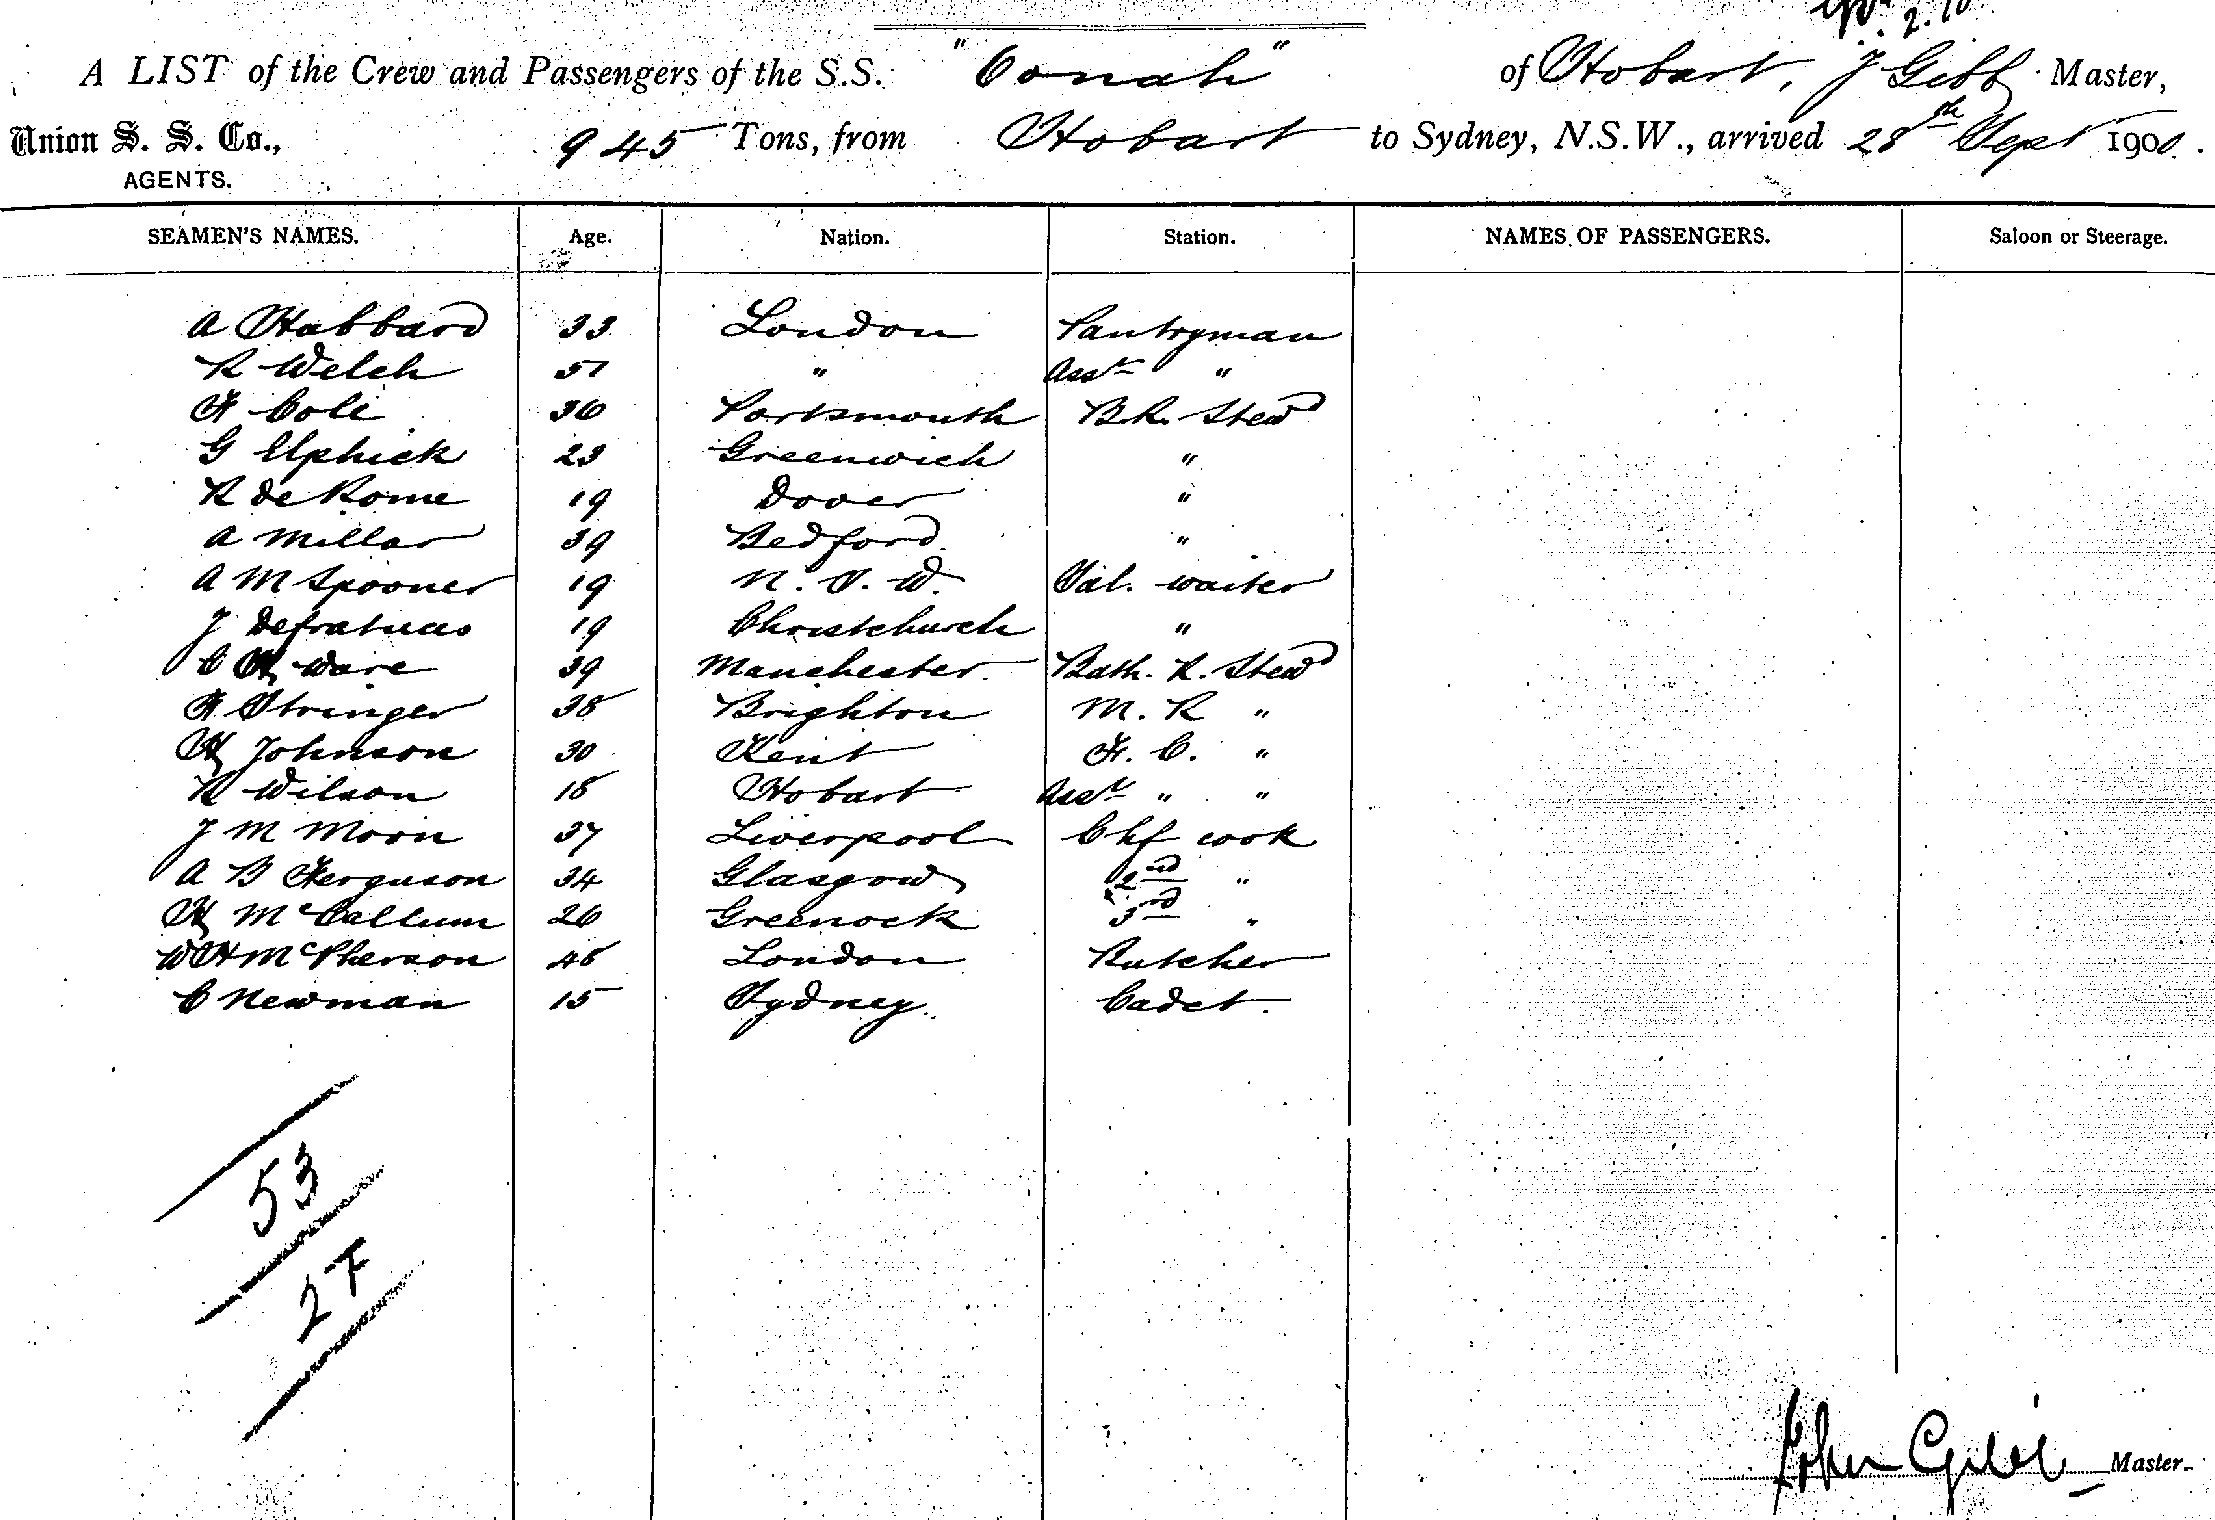 A LIST of the Crew and Passengers of the S.S. "Oonah" of Hobart, J Gibb Master,
Union S. S. Co., 945 Tons, from Hobart to Sydney, N.S.W., arrived 28th Sept 1900.
AGENTS.
SEAMEN'S NAMES. Age. Nation. Station. NAMES OF PASSENGERS. Saloon or Steerage.
A Habbard 33 London Pantryman
R Welch 51 " Asst "
F Cole 36 Portsmouth B.R. Stewd
G Elphick 23 Greenwich "
R de Rome 19 Dover "
A Millar 39 Bedford "
A M Spooner 19 N. S. W. Sal. waiter
J 19 Christchurch "
C H Ware 39 Manchester. Bath. R. Stewd
F Stringer 38 Brighton M. R "
H Johnson 30 Kent F. C. "
R Wilson 18 Hobart Asst " "
J M Moon 37 Liverpool Chf cook
A B Ferguson 34 Glasgow 2nd "
H McCallum 26 Greenock 3rd "
W H McPherson 48 London Butcher
C Newman 15 Sydney. Cadet.
53
27
John Gibb Master.